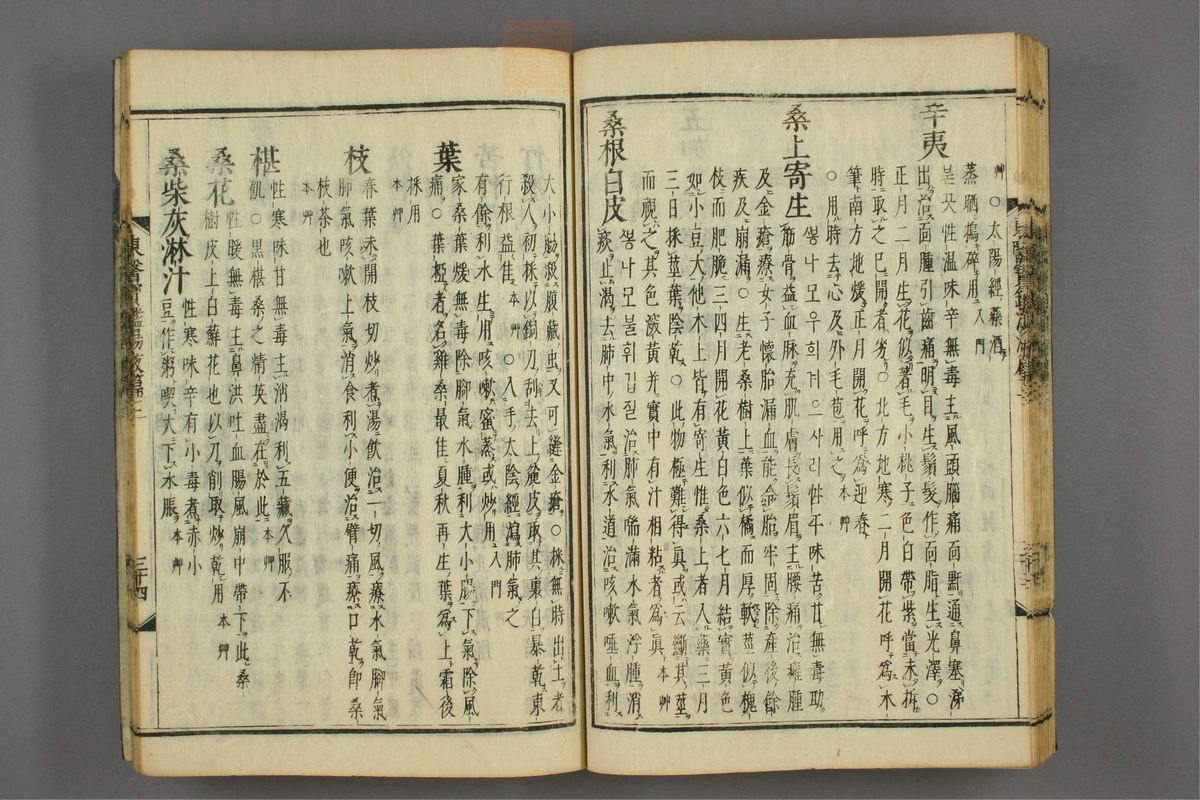 艸○太陽經藥酒
蒸晒搗碎用入門
辛夷
붇곳性温味辛無毒主風頭腦痛面䵟通鼻塞涕
出治面腫引齒痛明目生鬚髮作面脂生光澤○
正月二月生花似着毛小桃子色白帶紫當未拆
時取之已開者劣○北方地寒二月開花呼爲木
筆南方地煖正月開花呼爲迎春
○用時去心及外毛苞用之本艸
桑上寄生
뽕나모우희겨으사리性平味苦甘無毒助
筋骨益血脉充肌膚長鬚眉主腰痛治癰腫
及金瘡療女子懷胎漏血能令胎牢固除産後餘
疾及崩漏○生老桑樹上葉似橘而厚軟莖似槐
枝而肥脆三四月開花黄白色六七月結實黄色
如小豆大他木上皆有寄生惟桑上者入藥三月
三日採莖葉陰乾○此物極難得眞或云斷其莖
而視之其色深黄并實中有汁相粘者爲眞本艸
桑根白皮
뽕나모불휘겁질治肺氣喘滿水氣浮腫消
痰止渴去肺中水氣利水道治咳嗽唾血利
大小腸殺腹藏虫又可縫金瘡○採無時出土者
殺人初採以銅刀刮去上麄皮取其裏白暴乾東
行根益佳本艸○入手太陰經瀉肺氣之
有餘利水生用咳嗽蜜蒸或炒用入門
葉
家桑葉煖無毒除脚氣水腫利大小腸下氣除風
痛○葉椏者名雞桑最佳夏秋再生葉爲上霜後
採用
本艸
枝
春葉未開枝切炒煮湯飲治一切風療水氣脚氣
肺氣咳嗽上氣消食利小便治臂痛療口乾即桑
枝茶也
本艸
椹
性寒味甘無毒主消渴利五藏久服不
飢○黒椹桑之精英盡在於此本艸
桑花
性暖無毒主鼻洪吐血腸風崩中帶下此桑
樹皮上白蘚花也以刀削取炒乾用本艸
桑柴灰淋汁
性寒味辛有小毒煮赤小
豆作粥喫大下水脹本艸
三十四